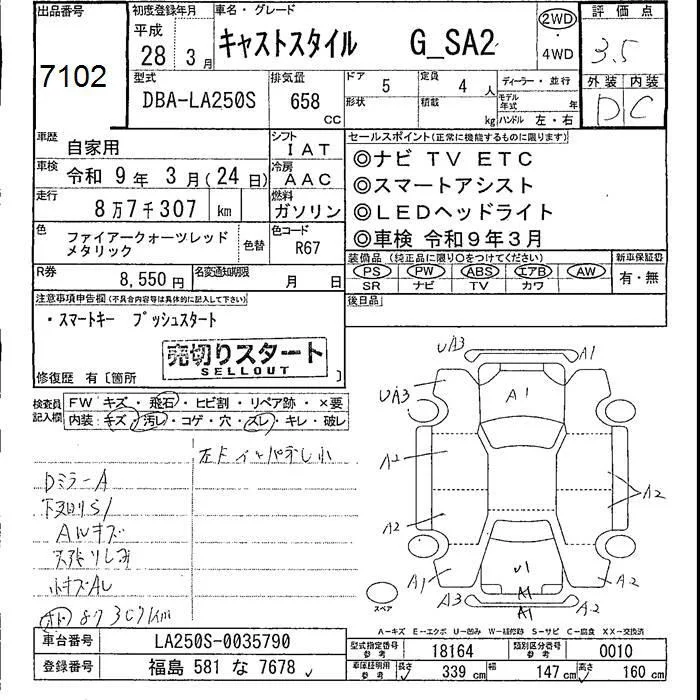 出品番号
7102
初度登録年月
平成
28 3月
車名・グレード
キャストスタイル G_SA2
2WD
・
4WD
評価点
3.5
外装 内装
D C
型式
DBA-LA250S
排気量
658
CC
ドア 5
形状
定員 4 人
積載 kg
ディーラー・並行
モデル年式 年
ハンドル 左・右
車歴
自家用
シフト
IAT
車検
令和 9年 3月(24日)
冷房
AAC
走行
8万7千307 km
燃料
ガソリン
色
ファイアークォーツレッド
メタリック
色替
色コード
R67
R券
8,550円
名変通知期限
月 日
セールスポイント(正常に機能するものに限ります)
◎ナビ TV ETC
◎スマートアシスト
◎LEDヘッドライト
◎車検 令和9年3月
装備品 (純正品に限り○をつけてください)
PS PW ABS エアB AW
SR ナビ TV カワ
新車保証書
有・無
後日品
注意事項申告欄(不具合内容等は具体的に記入して下さい)
・スマートキー プッシュスタート
売切りスタート
SELLOUT
修復歴 有〔箇所 〕
検査員
記入欄
FW キズ・飛石・ヒビ割・リペア跡・×要
内装:キズ・汚レ・コゲ・穴・スレ・キレ・破レ
DミラーA
下廻りS1
Aルキズ
小キズAL
UA3
A1
UA3
A1
A2
A2
A2
U1
A1
A1
A2
A3
A1
A2
スペア
A-キズ E-エクボ U-凹み W-補修跡 S-サビ C-腐食 XX-交換済
車台番号
LA250S-0035790
登録番号
福島 581 な 7678
型式指定番号
参考
18164
類別区分番号
参考
0010
車庫証明用
参考
長さ 339 cm
幅 147 cm
高さ 160 cm